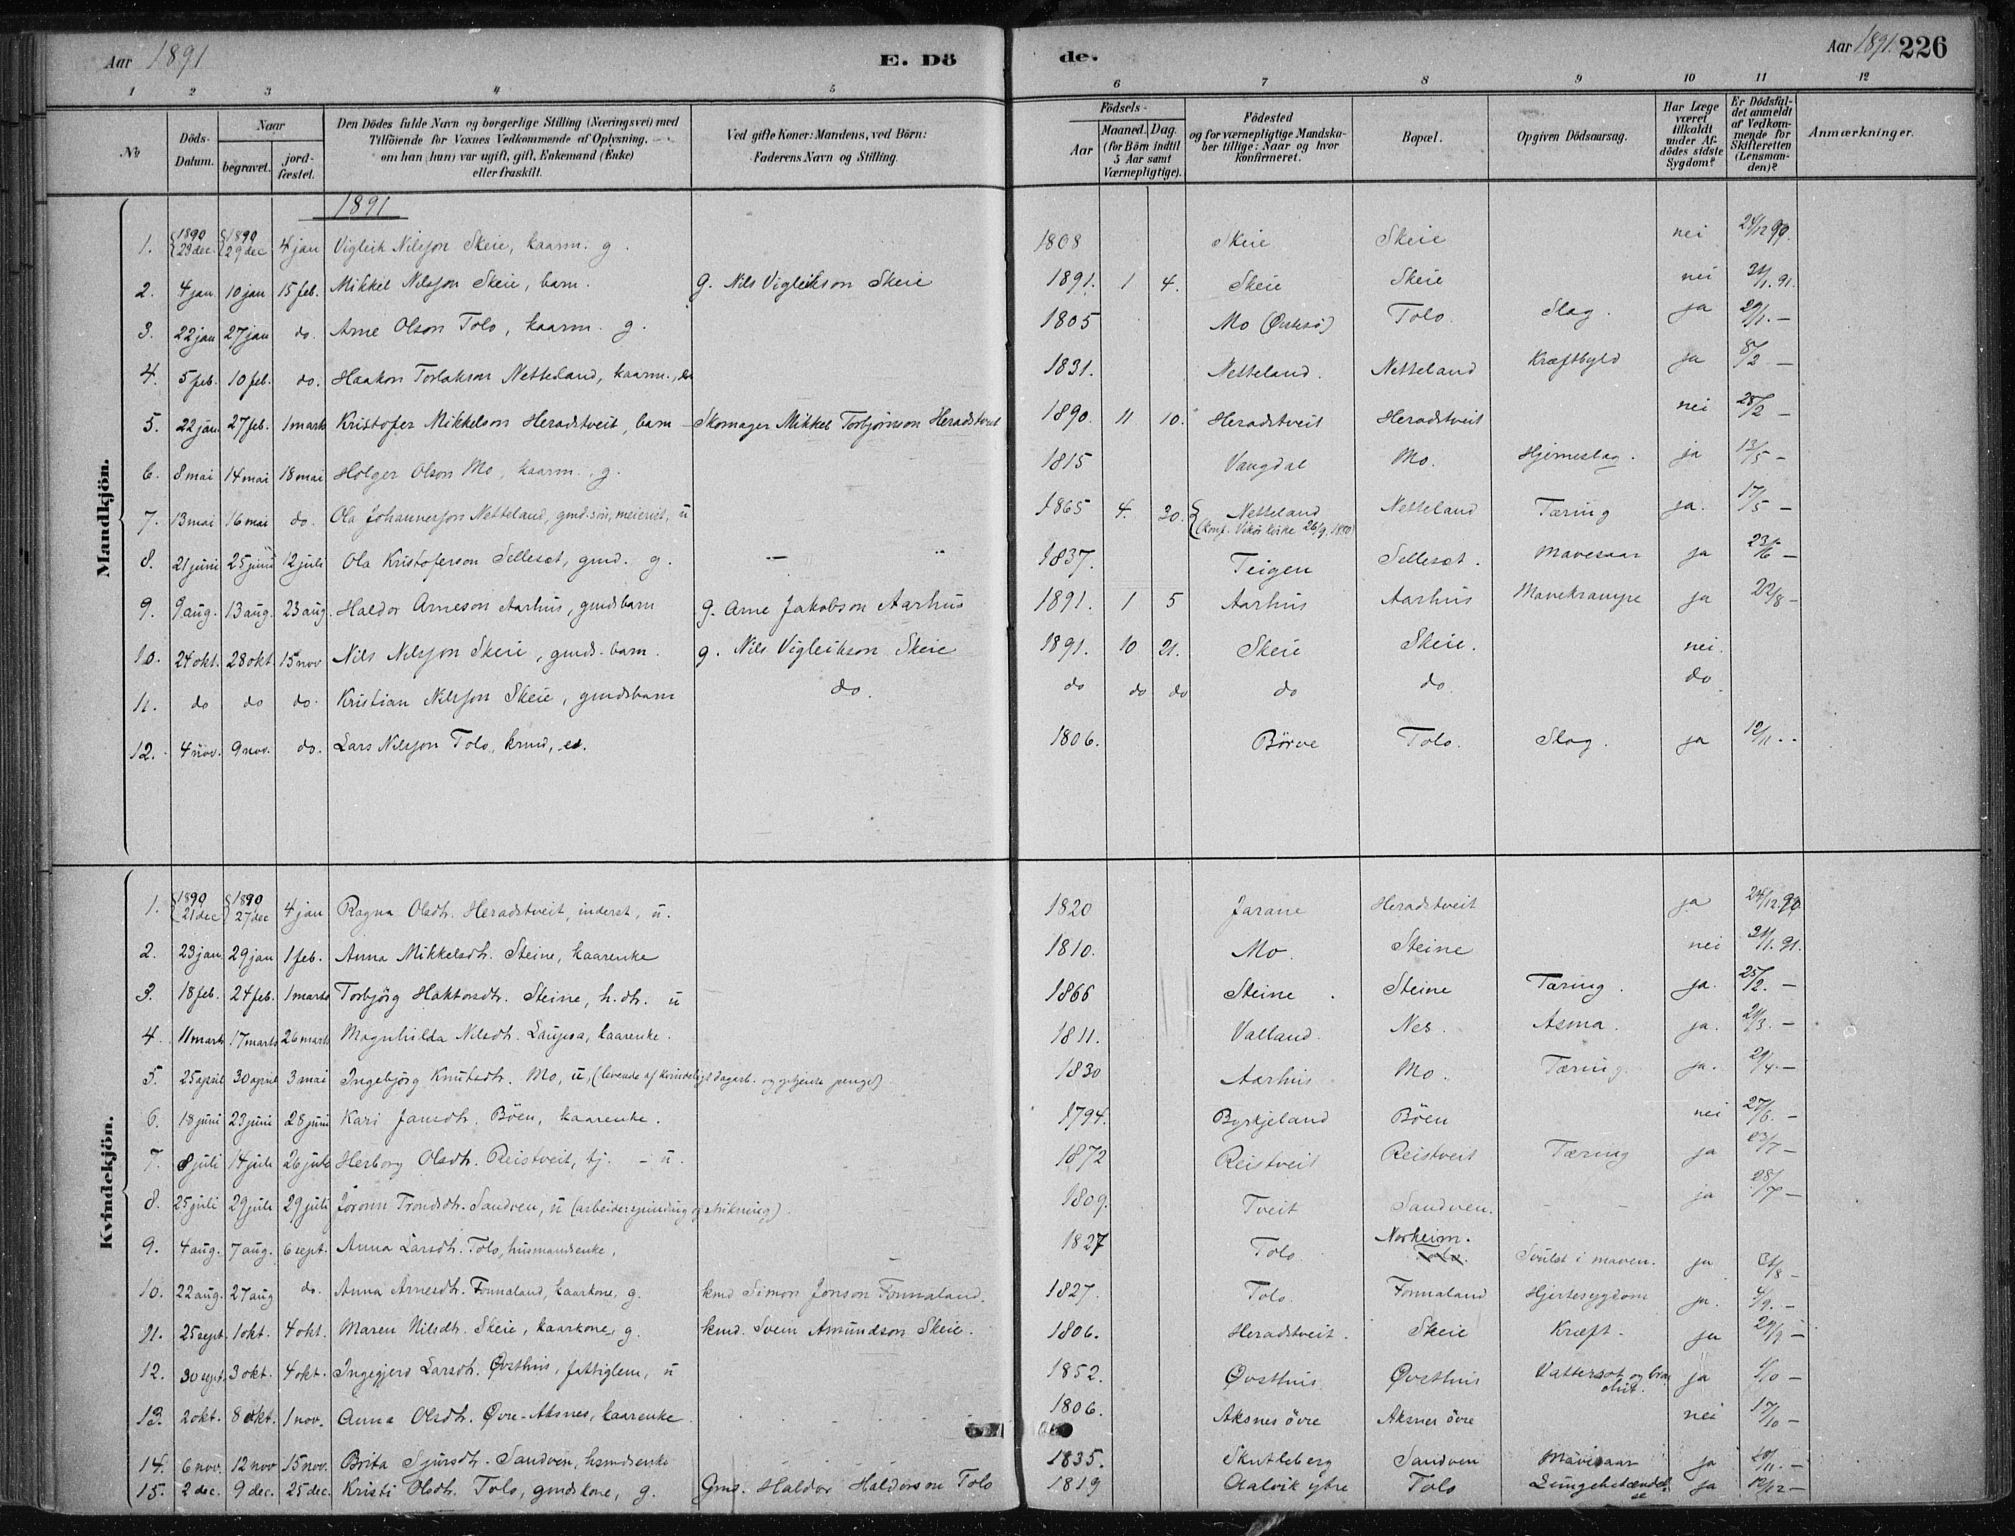 Aar 1891 E. Dö de. Aar 1891. 226
1 2 3 4 5 6 7 8 9 10 11 12
No Döds-Datum. Naar begravet. jordfæstet. Den Dödes fulde Navn og borgerlige Stilling (Næringsvei) med Tilföiende for Voxnes Vedkommende af Oplysning, om han (hun) var ugift, gift, Enkemand (Enke) eller fraskilt. Ved gifte Koner: Mandens, ved Börn: Faderens Navn og Stilling. Födsels- Aar Maaned. Dag. (for Börn indtil 5 Aar samt Værnepligtige). Födested og for værnepligtige Mandskaber tillige: Naar og hvor konfirmeret. Bopæl. Opgiven Dödsaarsag. Har Læge været tilkaldt under Afdödes sidste Sygdom? Er Dödsfaldet anmeldt af Vedkommende for Skifteretten (Lensmanden)? Anmærkninger.
1891
Mandkjön.
1. 1890 23 dec. 1890 29 dec 4 jan Vigleik Nilsson Skeie, kaarm. g. 1808 Skeie Skeie nei 24/12 90.
2. 4 jan 10 jan 15 feb. Mikkel Nilsson Skeie, barn. g. Nils Vigleikson Skeie 1891. 1 4. Skeie Skeie nei 31/1. 91.
3. 22 jan 27 jan do. Arne Olson Tolo, kaarm. g. 1805 Mo (Østesø) Tolo. Slag. ja 29/1. —
4. 5 feb. 10 feb. do. Haakon Torlakson Netteland, kaarm., 1831. Netteland. Netteland Kræftbyld ja 8/2 —
5. 22 jan 27 feb. 1 marts Kristofer Mikkelson Heradstveit, barn Skomager Mikkel Torbjørnson Heradstveit 1890. 11 10. Heradstveit Heradstveit nei 28/2 —
6. 8 mai 14 mai 18 mai Holger Olson Mo, kaarm., g. 1815 Vangdal Mo. Hjerneslag. ja 13/5 —
7. 13 mai 16 mai do. Ola Johannesson Netteland, gmd.søn, meierist, u 1865 4. 30. Netteland (Konf. Vikør kirke 26/9. 1880) Netteland Tæring ja. 17/5 —
8. 21 juni 25 juni 12 juli Ola Kristoferson Selleset, gmd. g. — 1837. Teigen Selleset. Mavesaar ja 23/6 —
9. 9 aug. 13 aug. 23 aug. Haldor Arneson Aarhus, gmdsbarn g. Arne Jakobson Aarhus 1891. 1 5 Aarhus Aarhus Mavekrampe ja 22/8 —
10. 24 okt. 28 okt 15 nov Nils Nilsson Skeie, gmds. barn. g. Nils Vigleikson Skeie 1891. 10 21. Skeie Skeie. nei.
11. do do do. Kristian Nilsson Skeie, gmdsbarn do. do do do do do. do
12. 4 nov. 9 nov. do. Lars Nilsson Tolo, kmd, e. 1806. Børve Tolo. Slag. ja 12/11. -
Kvindekjön.
1. 1890 21 dec 1890 27 dec 4 jan Ragna Olsdtr. Heradstveit, inderst, u. 1820 Jarane Heradstveit ja 24/12 90.
2. 23 jan 29 jan 1 feb. Anna Mikkelsdtr. Steine, kaarenke 1810. Mo. Steine nei 31/1. 91.
3. 18 feb. 24 feb. 1 marts Torbjörg Haktorsdtr. Steine, h. dtr. u 1866 Steine. Steine Tæring. ja. 25/2. —
4. 11 marts 17 marts 26 marts Magnhilda Nilsdtr. Laupsa, kaarenke. 1811. Valland. Nes. Asma. ja. 21/3. —
5. 25 april 30 april 3 mai Ingebjörg Knutsdtr. Mo, u, (levende af kvindeligt dagarb. og optjente penge) 1830 Aarhus Mo. Tæring. ja. 29/4. —
6. 18 juni 23 juni 28 juni Kari Jansdtr. Böen, kaarenke. 1794. Byrkjeland Böen nei 27/6. —
7. 8 juli 14 juli 26 juli Herborg Olsdtr. Reistveit, tj. - u. 1872 Reistveit Reistveit Tæring ja 23/7 —
8. 25 juli 29 juli 29 juli Joronn Trondsdtr. Sandven, u (arbeider spinding og strikning). 1809. Tveit Sandven. - - ja 28/7 —
9. 4 aug. 7 aug. 6 sept. Anna Larsdtr. Tolo, husmandsenke, 1827 Tolo Norheim. Tolo. Svulst i maven. ja 31/8 —
10. 22 aug. 27 aug do. Anna Arnesdtr. Fonnaland, kaarkone, g. kmd Simon Jonson Fonnaland. 1827. Tolo. Fonnaland Hjertesygdom ja. 4/9. —
11. 25 sept. 1 okt. 4 okt. Maren Nilsdtr. Skeie, kaarkone, g. kmd. Svein Amundson Skeie. 1806. Heradstveit. Skeie Kræft. ja 29/9 —
12. 30 sept. 3 okt. 4 okt. Ingegjerd Larsdtr. Øvsthus, fattiglem, u 1852. Øvsthus Øvsthus Vattersot og ja 1/10 —
13. 2 okt. 8 okt. 1 nov. Anna Olsdtr. Øvre-Aksnes, kaarenke 1806. Aksnes övre Aksnes övre nei 17/10 —
14. 6 nov. 12 nov 15 nov. Brita Sjursdtr. Sandven, hsmdsenke 1835. Skutleberg Sandven Mavesaar ja —
15. 2 dec. 9 dec. 25 dec. Kristi Olsdtr. Tolo, gmdskone, g. Gmd. Haldor Haldorson Tolo 1819 Aalvik ytre Tolo Lungebetændelse ja 12/12 —